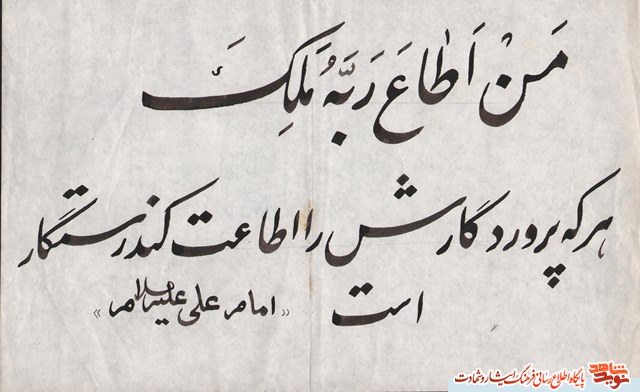 مَنْ اَطاعَ رَبَّهُ مَلِکَ
هر که پروردگارش را اطاعت کند رستگار
است «امام علی علیه السلام»
نوید شاهد پایگاه اطلاع رسانی فرهنگ ایثار و شهادت